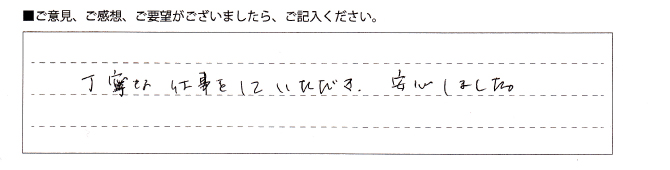 ■ご意見、ご感想、ご要望がございましたら、ご記入ください。
丁寧な仕事をしていただき、安心しました。